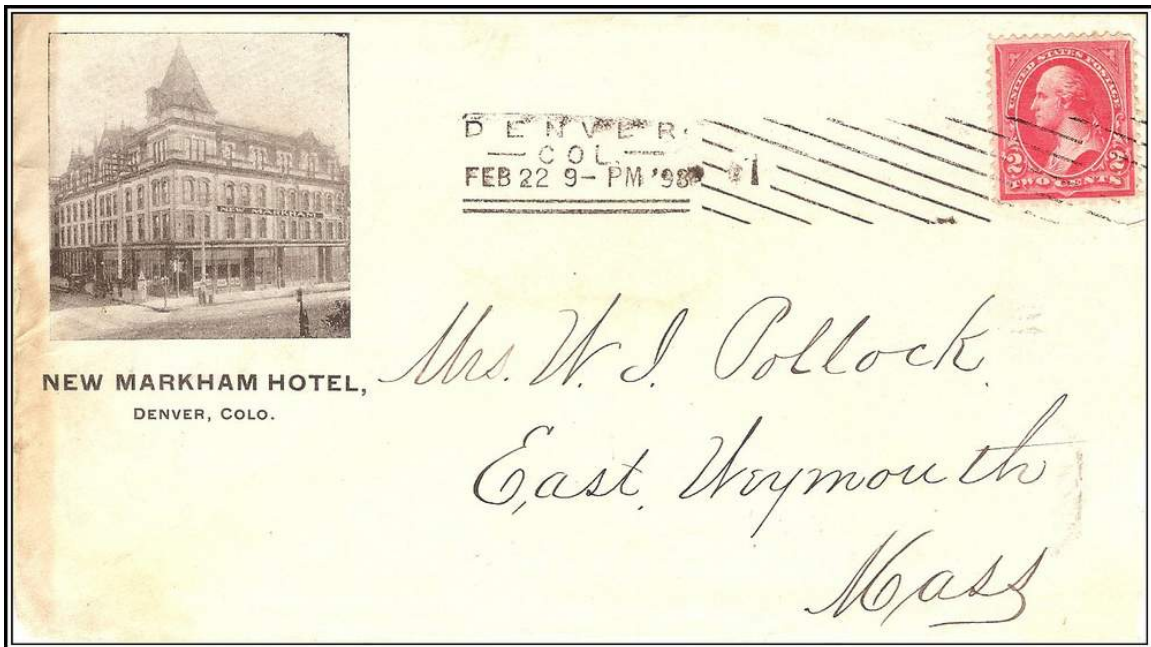 NEW MARKHAM
NEW MARKHAM HOTEL,
DENVER, COLO.
DENVER.
COL.
FEB 22 9-PM '98
1
UNITED STATES POSTAGE
2 2
TWO CENTS
Mrs. W. I. Pollock.
East Weymouth
Mass